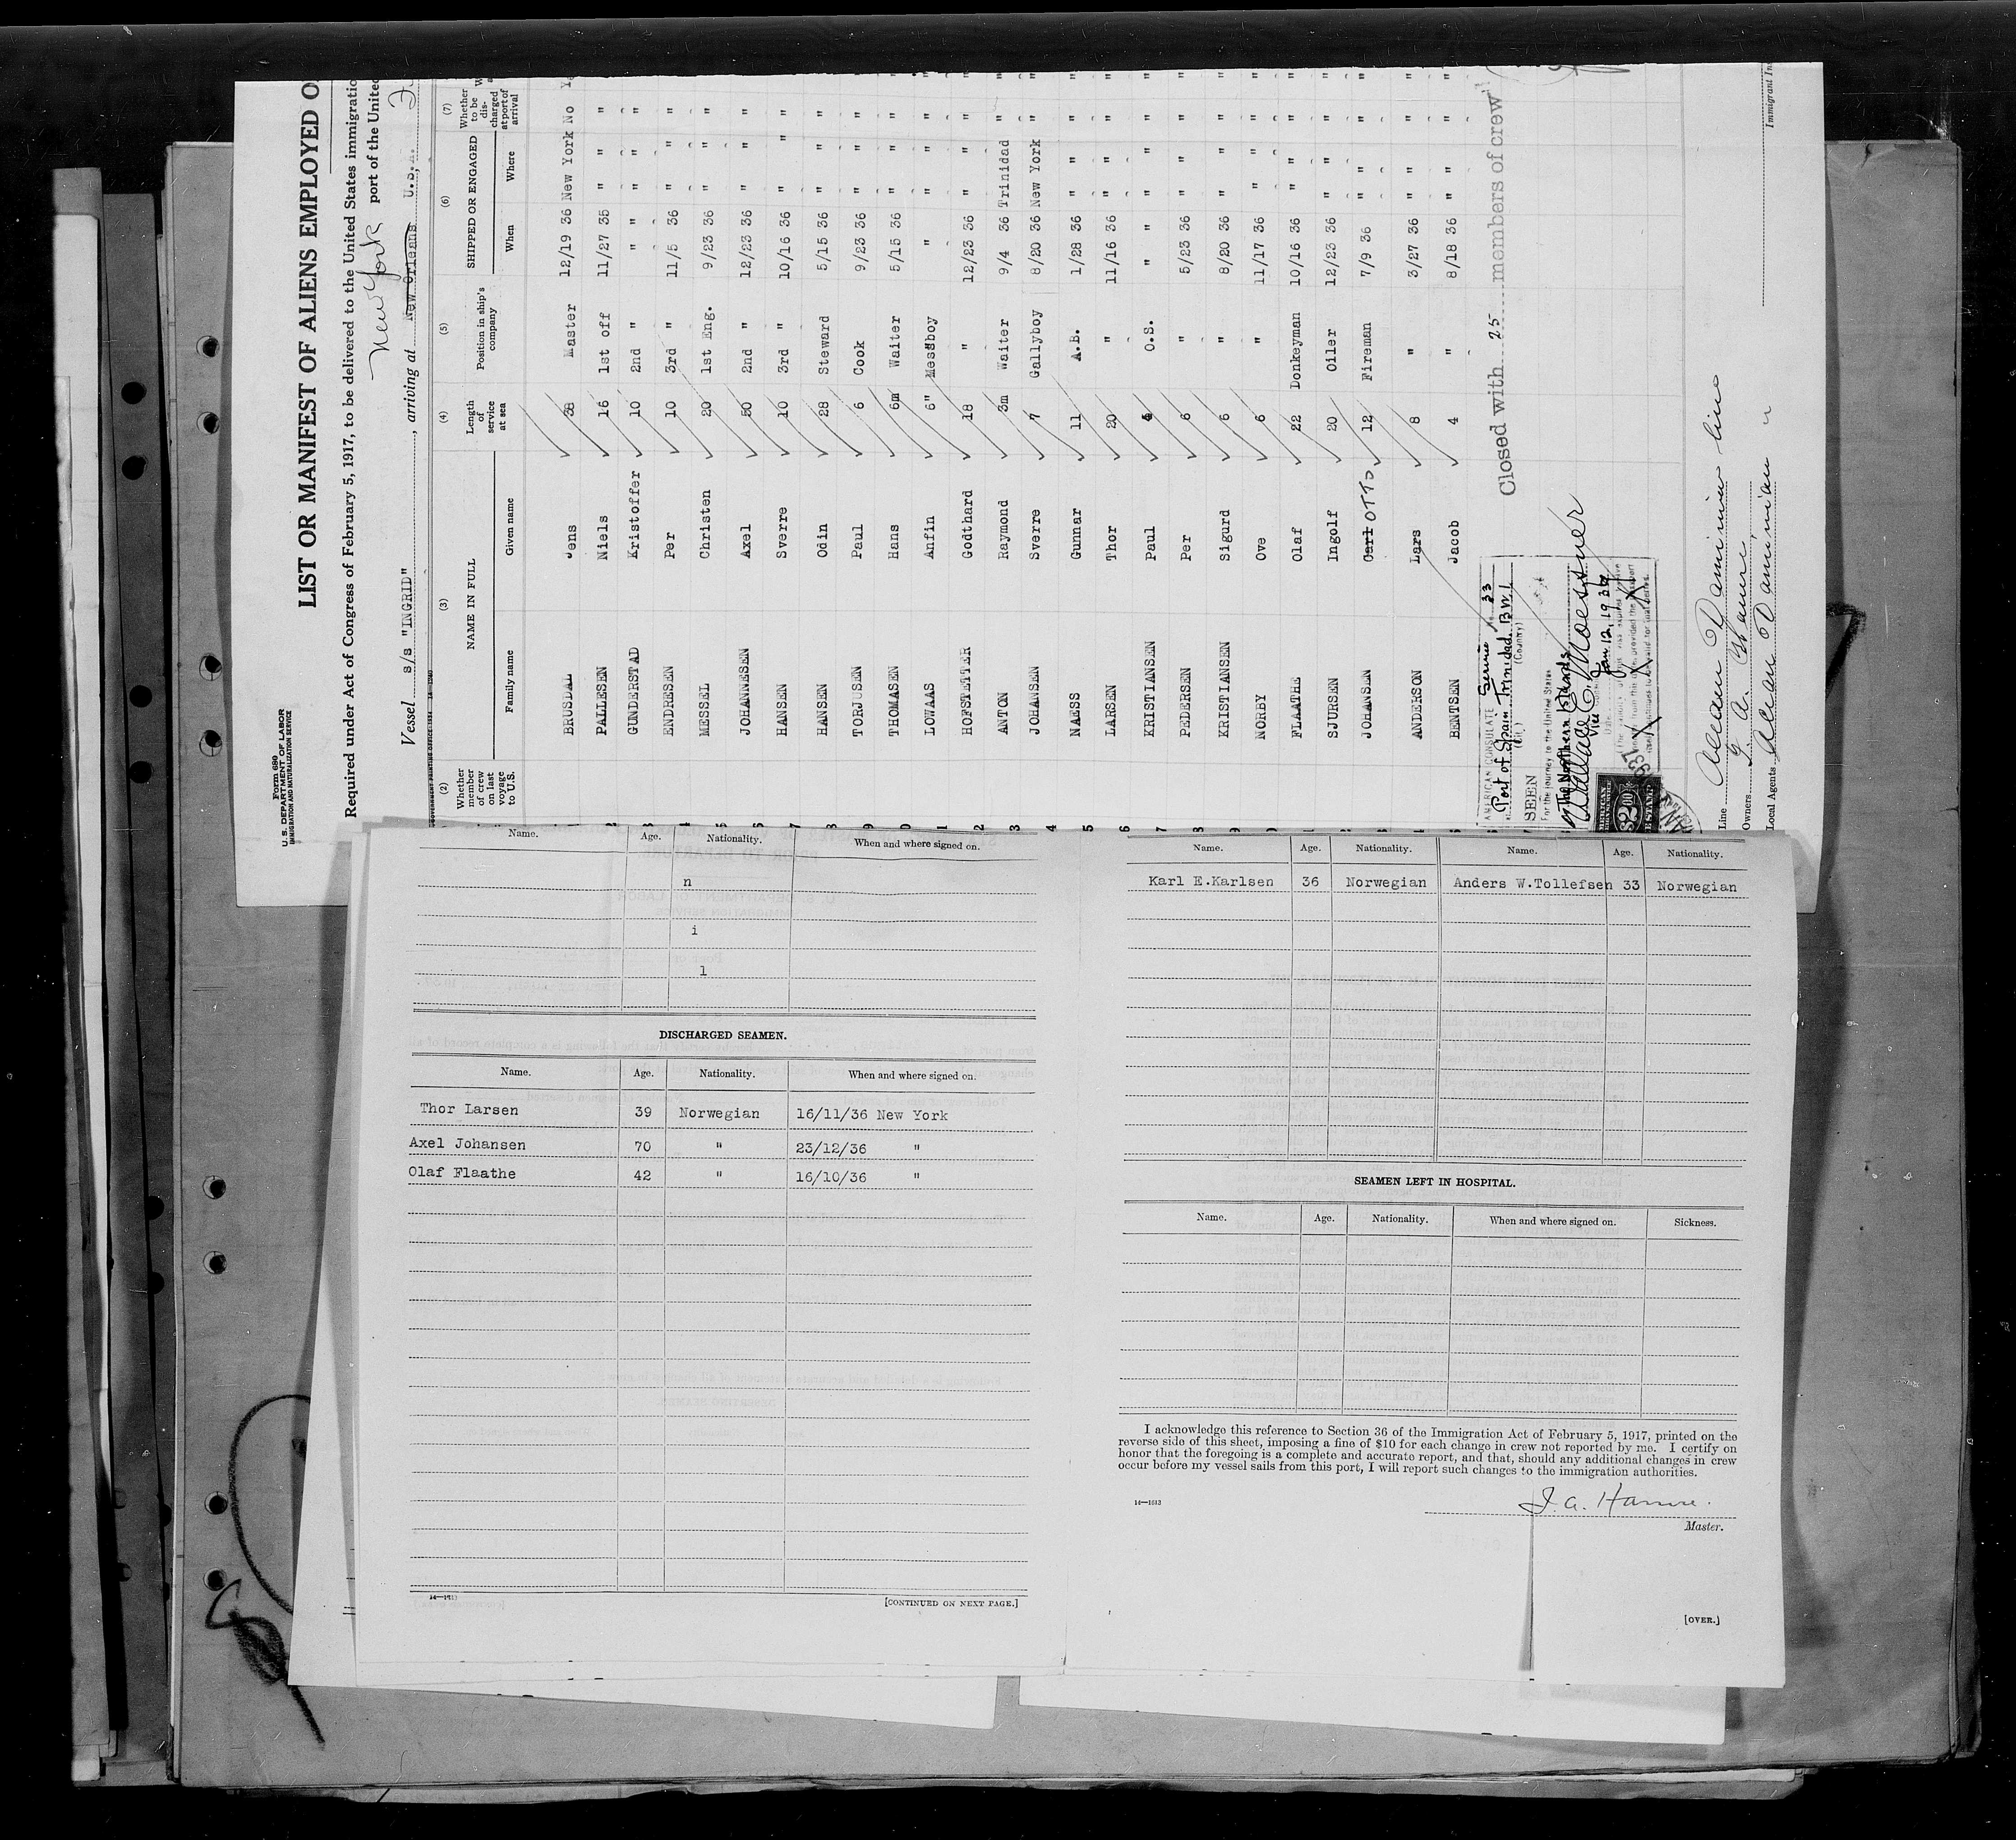 Form 680
U. S. DEPARTMENT OF LABOR
IMMIGRATION AND NATURALIZATION SERVICE
LIST OR MANIFEST OF ALIENS EMPLOYED O
Required under Act of Congress of February 5, 1917, to be delivered to the United States immigratio
port of the United
New York
Vessel s/s "INGRID", arriving at New Orleans U.S.A.
(2) (3) (4) (5) (6) (7)
Whether member of crew on last voyage to U.S. NAME IN FULL Length of service at sea Position in ship's company SHIPPED OR ENGAGED Whether to be discharged at port of arrival
Family name Given name When Where
BRUSDAL Jens 38 Master 12/19 36 New York No Ye
PALLESEN Niels 16 1st off 11/27 35 " " "
GUNDERSTAD Kristoffer 10 2nd " " " " " "
ENDRESEN Per 10 3rd " 11/5 36 " " "
MESSEL Christen 20 1st Eng. 9/23 36 " " "
JOHANNESEN Axel 50 2nd " 12/23 36 " " "
HANSEN Sverre 10 3rd " 10/16 36 " " "
HANSEN Odin 28 Steward 5/15 36 " " "
TORJUSEN Paul 6 Cook 9/23 36 " " "
THOMASEN Hans 6m Waiter 5/15 36 " " "
LOWAAS Anfin 6" Messboy " " " "
HOFSTETTER Godthard 18 " 12/23 36 " " "
ANTON Raymond 3m Waiter 9/4 36 Trinidad "
JOHANSEN Sverre 7 Gallyboy 8/20 36 New York "
NAESS Gunnar 11 A.B. 1/28 36 " " "
LARSEN Thor 20 " 11/16 36 " " "
KRISTIANSEN Paul O.S. " " " " "
PEDERSEN Per 6 " 5/23 36 " " "
KRISTIANSEN Sigurd 6 " 8/20 36 " " "
NORBY Ove 6 " 11/17 36 " " "
FLAATHE Olaf 22 Donkeyman 10/16 36 " " "
SJURSEN Ingolf 20 Oiler 12/23 36 " " "
JOHANSEN Carl OTTO 12 Fireman 7/9 36 " " "
ANDERSON Lars 8 " 3/27 36 " " "
BENTSEN Jacob 4 " 8/18 36 " " "
Closed with 25 members of crew
AMERICAN CONSULATE Service No. 33
Port of Spain Trinidad. B.W.I.
(City) (Country)
SEEN
For the journey to the United States
Wallace E. Moessner
Vice Consul
Jan. 12, 1937
Line Ocean Dominion Line
Owners
Local Agents Ocean Dominion "
Name. Age. Nationality. When and where signed on.
n
i
l
DISCHARGED SEAMEN.
Name. Age. Nationality. When and where signed on.
Thor Larsen 39 Norwegian 16/11/36 New York
Axel Johansen 70 " 23/12/36 "
Olaf Flaathe 42 " 16/10/36 "
[CONTINUED ON NEXT PAGE.]
Name. Age. Nationality. Name. Age. Nationality.
Karl E.Karlsen 36 Norwegian Anders W.Tollefsen 33 Norwegian
SEAMEN LEFT IN HOSPITAL.
Name. Age. Nationality. When and where signed on. Sickness.
I acknowledge this reference to Section 36 of the Immigration Act of February 5, 1917, printed on the
reverse side of this sheet, imposing a fine of $10 for each change in crew not reported by me. I certify on
honor that the foregoing is a complete and accurate report, and that, should any additional changes in crew
occur before my vessel sails from this port, I will report such changes to the immigration authorities.
14—1613
Master.
[OVER.]